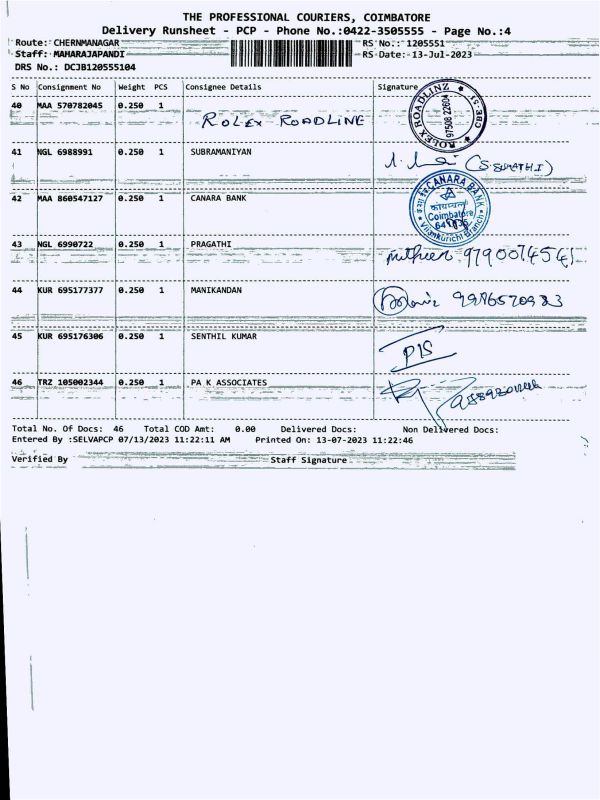 THE PROFESSIONAL COURIERS, COIMBATORE
Delivery Runsheet - PCP - Phone No.:0422-3505555 - Page No.:4
Route: CHERNMANAGAR RS No.: 1205551
Staff: MAHARAJAPANDI RS Date: 13-Jul-2023
DRS No.: DCJB120555104
S No Consignment No Weight PCS Consignee Details Signature
40 MAA 570782045 0.250 1 ROLEX ROADLINE
ROLEX ROADLINZ
CBE-51
41 NGL 6988991 0.250 1 SUBRAMANIYAN
42 MAA 860547127 0.250 1 CANARA BANK
CANARA BANK
Coimbatore
43 NGL 6990722 0.250 1 PRAGATHI
44 KUR 695177377 0.250 1 MANIKANDAN
45 KUR 695176306 0.250 1 SENTHIL KUMAR
46 TRZ 105002344 0.250 1 PA K ASSOCIATES
Total No. Of Docs: 46 Total COD Amt: 0.00 Delivered Docs: Non Delivered Docs:
Entered By :SELVAPCP 07/13/2023 11:22:11 AM Printed On: 13-07-2023 11:22:46
Verified By Staff Signature